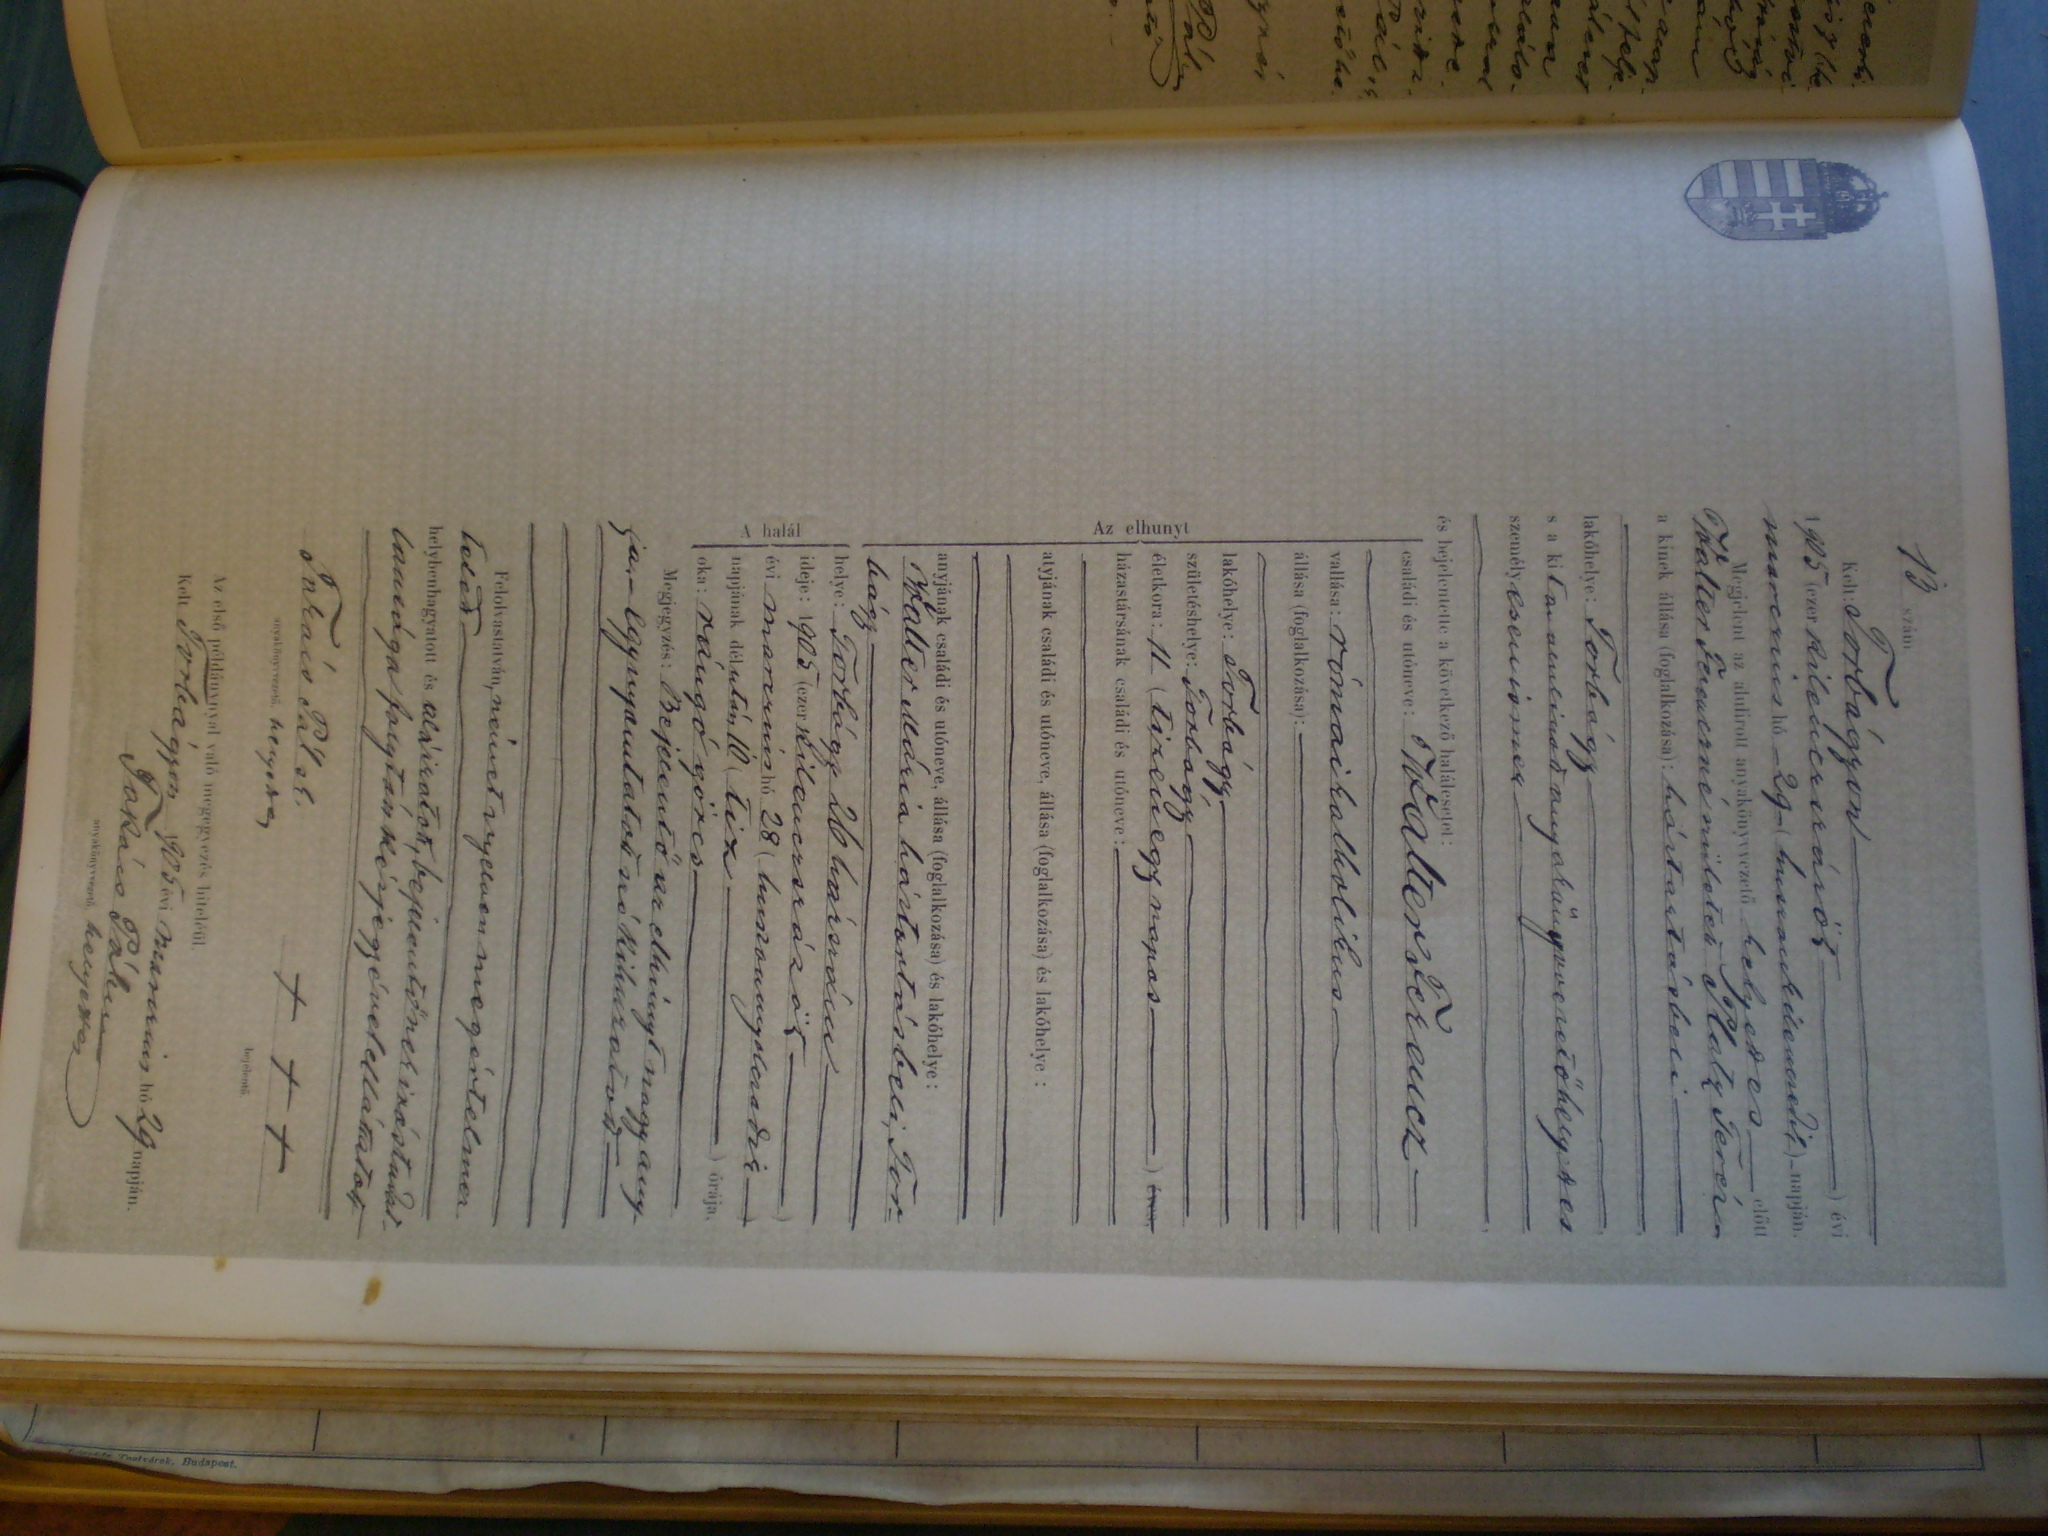 13 szám.
Kelt: Torbágyon
1905 (ezer kilenczszázöt) évi
marczius hó 29 (huszonkilenczedik) napján.
Megjelent az alulirott anyakönyvvezető helyettes előtt
Walter Ferenczné született Platz Terézia
a kinek állása (foglalkozása): háztartásbeli
lakóhelye: Torbágy
s a kit anyakönyvvezetőhelyettes
személyesen ismer
és bejelentette a következő halálesetet:
Az elhunyt
családi és utóneve: Walter Ferencz
vallása: római katholikus
állása (foglalkozása):
lakóhelye: Torbágy
születéshelye: Torbágy
életkora: 11 (tizenegy napos) éves,
házastársának családi és utóneve:
atyjának családi és utóneve, állása (foglalkozása) és lakóhelye:
anyjának családi és utóneve, állása (foglalkozása) és lakóhelye:
Walter Mária háztartásbeli, Tor-
bágy
A halál
helye: Torbágy 26 házszám
ideje: 1905 (ezer kilenczszázöt)
évi marczius hó 28 (huszonnyolczadik)
napjának délután 10 (tiz) órája.
oka: rángó görcs
Megjegyzés: Bejelentő az elhunyt nagyany-
ja.
Felolvastatván, német nyelven megértelmez-
tetett
helybenhagyatott és aláiratott, bejelentőnek irástudat-
lansága folytán kézjegyével elláttatott
Takács Pál sk.
anyakönyvvezető helyettes
+ + +
bejelentő.
Az első példánynyal való megegyezés hiteléül.
Kelt Torbágyon 1905 évi marczius hó 29 napján.
Takács Pál
anyakönyvvezető helyettes
Testvérek, Budapest.